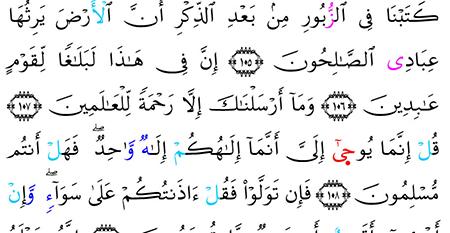 كَتَبْنَا فِى ٱلزُّبُورِ مِنۢ بَعْدِ ٱلذِّكْرِ أَنَّ ٱلْأَرْضَ يَرِثُهَا
عِبَادِى ٱلصَّـٰلِحُونَ ١٠٥ إِنَّ فِى هَـٰذَا لَبَلَـٰغًا لِّقَوْمٍ
عَـٰبِدِينَ ١٠٦ وَمَآ أَرْسَلْنَـٰكَ إِلَّا رَحْمَةً لِّلْعَـٰلَمِينَ ١٠٧
قُلْ إِنَّمَا يُوحىٰٓ إِلَىَّ أَنَّمَآ إِلَـٰهُكُمْ إِلَـٰهٌ وَٰحِدٌ ۖ فَهَلْ أَنتُم
مُّسْلِمُونَ ١٠٨ فَإِن تَوَلَّوْا۟ فَقُلْ ءَاذَنتُكُمْ عَلَىٰ سَوَآءٍ ۖ وَإِنْ